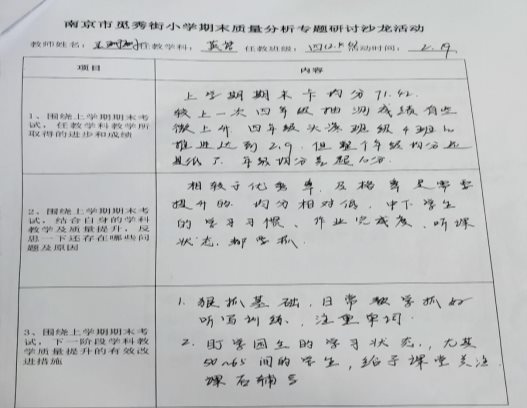 南京市觅秀街小学期末质量分析专题研讨沙龙活动
教师姓名： 任教学科：英语 任教班级：四 活动时间：2.9
项目 内容
1、围绕上学期期末考
试，任教学科教学所
取得的进步和成绩
上学期期末卡均分71.42.
较上一次四年级抽测成绩有些
微上升 四年级 班级4班
推进达到2.9. 但整个年级均分还
是 年级均分
2、围绕上学期期末考
试，结合自身的学科
教学及质量提升，反
思一下还存在哪些问
题及原因
相较于优秀率，及格率是需要
提升的. 均分相对低，中下学生
的学习习惯、作业完成度、听课
状态，都 抓.
3、围绕上学期期末考
试，下一阶段学科教
学质量提升的有效改
进措施
1. 狠抓基础，日常教学抓好
听写训练，注重单词.
2. 盯学困生的学习状态，尤其
50~65间的学生，给予课堂关注
课后辅导